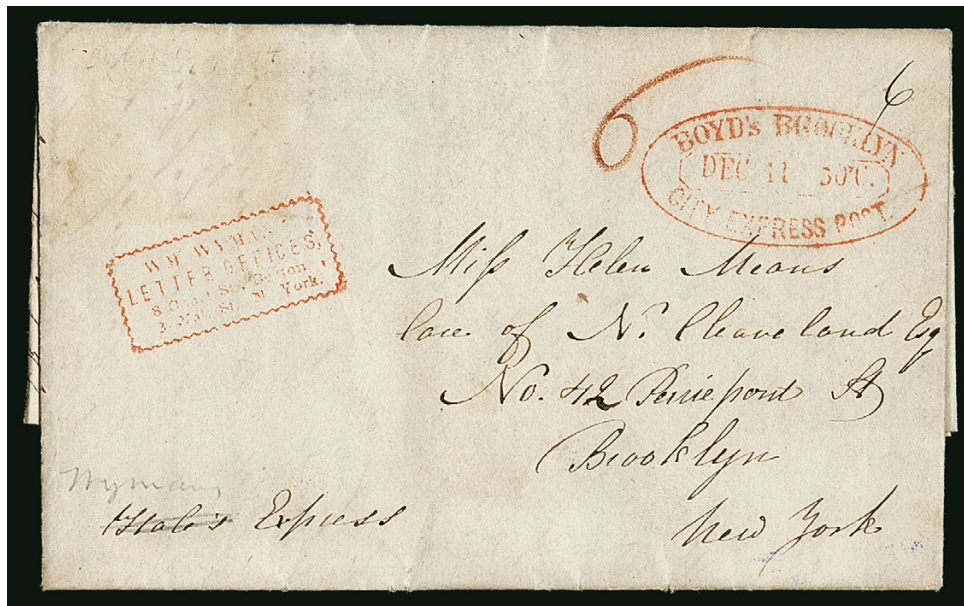 6
6
BOYD'S BROOKLYN
DEC 11
CITY EXPRESS POST.
WM. WYMAN
LETTER OFFICES,
8 Court St. Boston
3 Wall St. N. York.
Miss Helen Means
Care of N. Cleaveland Esq
No. 42 Pierepont St
Brooklyn
New York
Wyman's
Hale's Express